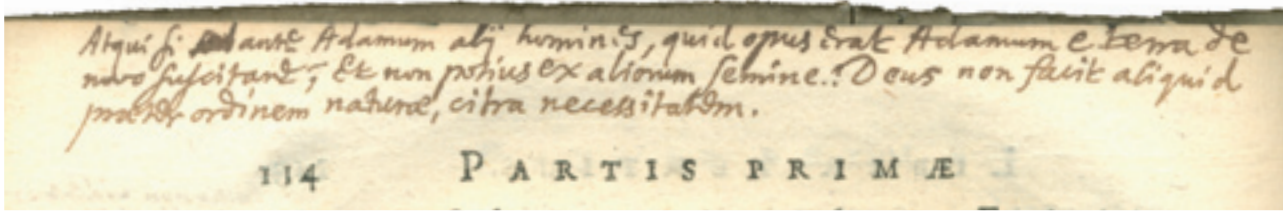 Atqui si ante Adamum alij homines, quid opus erat Adamum e terra de
novo suscitare; Et non potius ex aliorum semine.? Deus non facit aliquid
præter ordinem naturæ, citra necessitatem.
114 PARTIS PRIMÆ